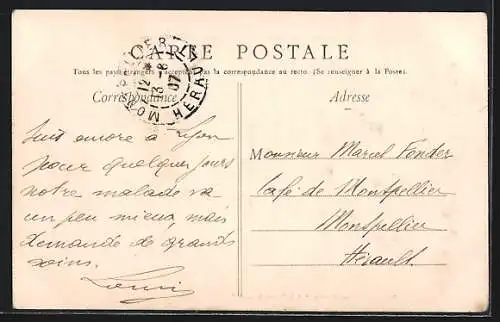 CARTE POSTALE
Tous les pays étrangers n'acceptent pas la correspondance au recto (Se renseigner à la Poste).
MONTPELLIER HERAULT
12 *
13 -8
07
Correspondance
Adresse
Suis encore à Lyon
pour quelques jours
notre malade va
un peu mieux, mais
demande de grands
soins.
Louis
Monsieur Marcel
Café de Montpellier
Montpellier
Hérault.